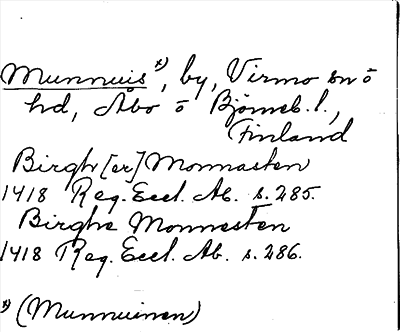 Munnuis *), by, Virmo sn o
hd, Åbo o Björneb. l.,
Finland
Birgh [er] Monnasten
1418 Reg. Eccl. Ab. s. 285.
Birghe Monnesten
1418 Reg. Eccl. Ab. s. 286.
*) (Munnuinen)